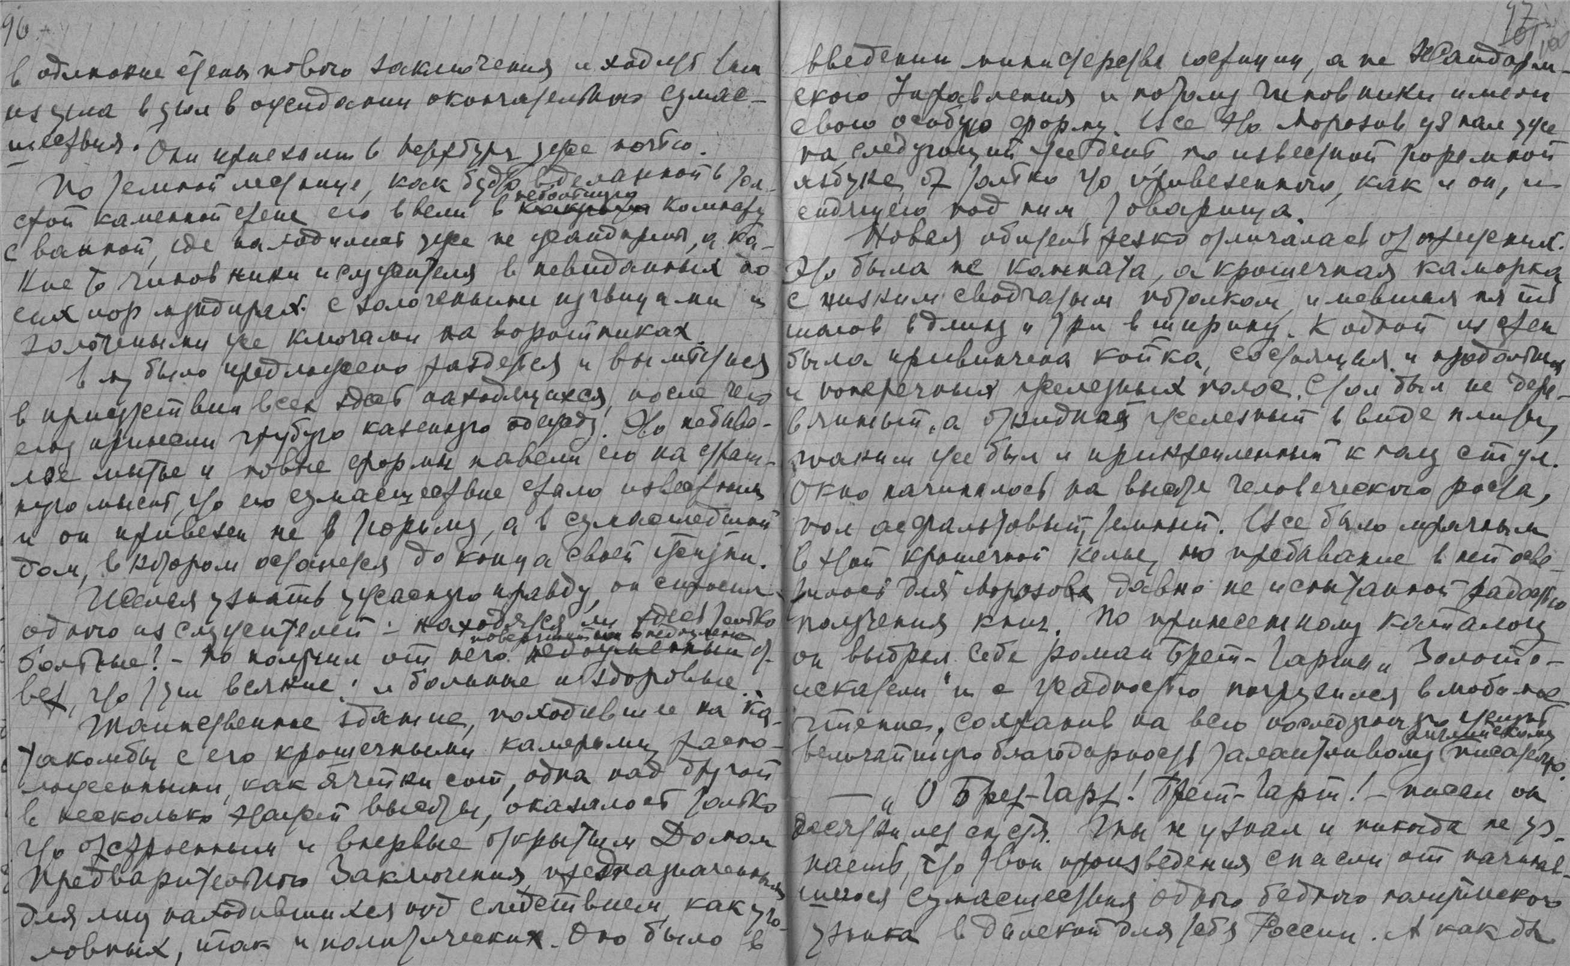 96
в одиночке стены нового заключения и ходит там
из угла в угол в ожидании окончательного сумас-
шествия. Они приехали в Петербург уже ночью.
По темной лестнице, как будто вделанной в тол-
стой каменной стене его ввели в небольшую комнату
с ванной, где находились уже не жандармы, а ка-
кие то чиновники и служителя в невиданных до
сих пор мундирах с золочеными пуговицами и
золочеными же ключами на воротниках.
Ему было предложено раздеться и вымыться
в присутствии всех здесь находящихся, после чего
ему принесли грубую казенную одежду. Это небыва-
лое мытье и новые формы навели его на страш-
ную мысль, что его сумасшествие стало известным
и он привезен не в тюрьму, а в сумасшедший
дом, в котором останется до конца своей жизни.
Желая узнать ужасную правду, он спросил
одного из служителей: находятся ли здесь только
больные? – но получил от него от-
вет, что тут всякие: и больные и здоровые.
Таинственное здание, походившее на ка-
такомбы с его крошечными камерами, распо-
ложенными, как ячейки сот, одна над другой
в несколько этажей высоты, оказалось только
что отстроенным и впервые открытым Домом
Предварительного Заключения, предназначенным
для лиц находившихся под следствием, как уго-
ловных, так и политических. Оно было в
97
введении министерства юстиции, а не Жандарм-
ского Управления и потому чиновники имели
свою особую форму. Все это Морозов узнал уже
на следующий же день по известной тюремной
азбуке, от только что привезенного, как и он, и
сидящего под ним товарища.
Новая обитель резко отличалась от прежних.
Это была не комната, а крошечная каморка
с низким сводчатым потолком, имевшая пять
шагов в длину и три в ширину. К одной из стен
была привинчена койка, состоящая из продольных
и поперечных железных полос. Стол был не дере-
вянный, а откидной железный в виде плиты,
таким же был и прикрепленный к полу стул.
Окно начиналось на высоте человеческого роста,
пол асфальтовый, темный. Все было мрачным
в этой крошечной келье, но пребывание в ней осве-
тилось для Морозова давно не испытанной радостью
получения книг. По принесенному каталогу
он выбрал себе роман Брет-Гарта „Золото-
искатели" и с жадностью погрузился в любимое
чтение, сохранив на всю последующую жизнь
величайшую благодарность талантливому английскому писателю.
— „О Брет-Гарт! Брет-Гарт! – писал он
десятки лет спустя. Ты не узнал и никогда не уз-
наешь, что твои произведения спасли от начинав-
шегося сумасшествия одного бедного политического
узника в далекой для тебя России. А как бы